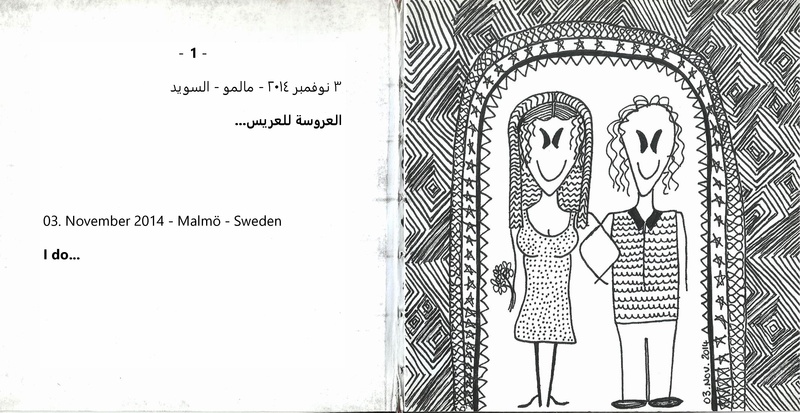 - 1 -
٣ نوفمبر ٢٠١٤ - مالمو - السويد
العروسة للعريس...
03. November 2014 - Malmö - Sweden
I do...
03. NOV. 2014